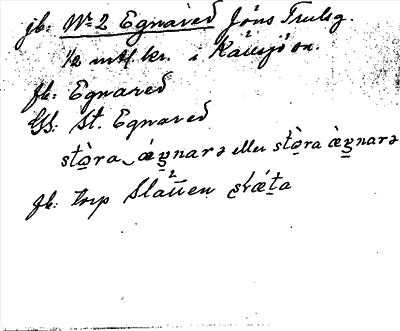 jb: No 2 Egnared Jöns Trulsg.
1/2 mtl kr. i Källsjö sn.
fb: Egnared
GS: St. Egnared
stò̱ra æ̀gnarə eller stò̱ra æ̀gnarə
fb: torp Slätten